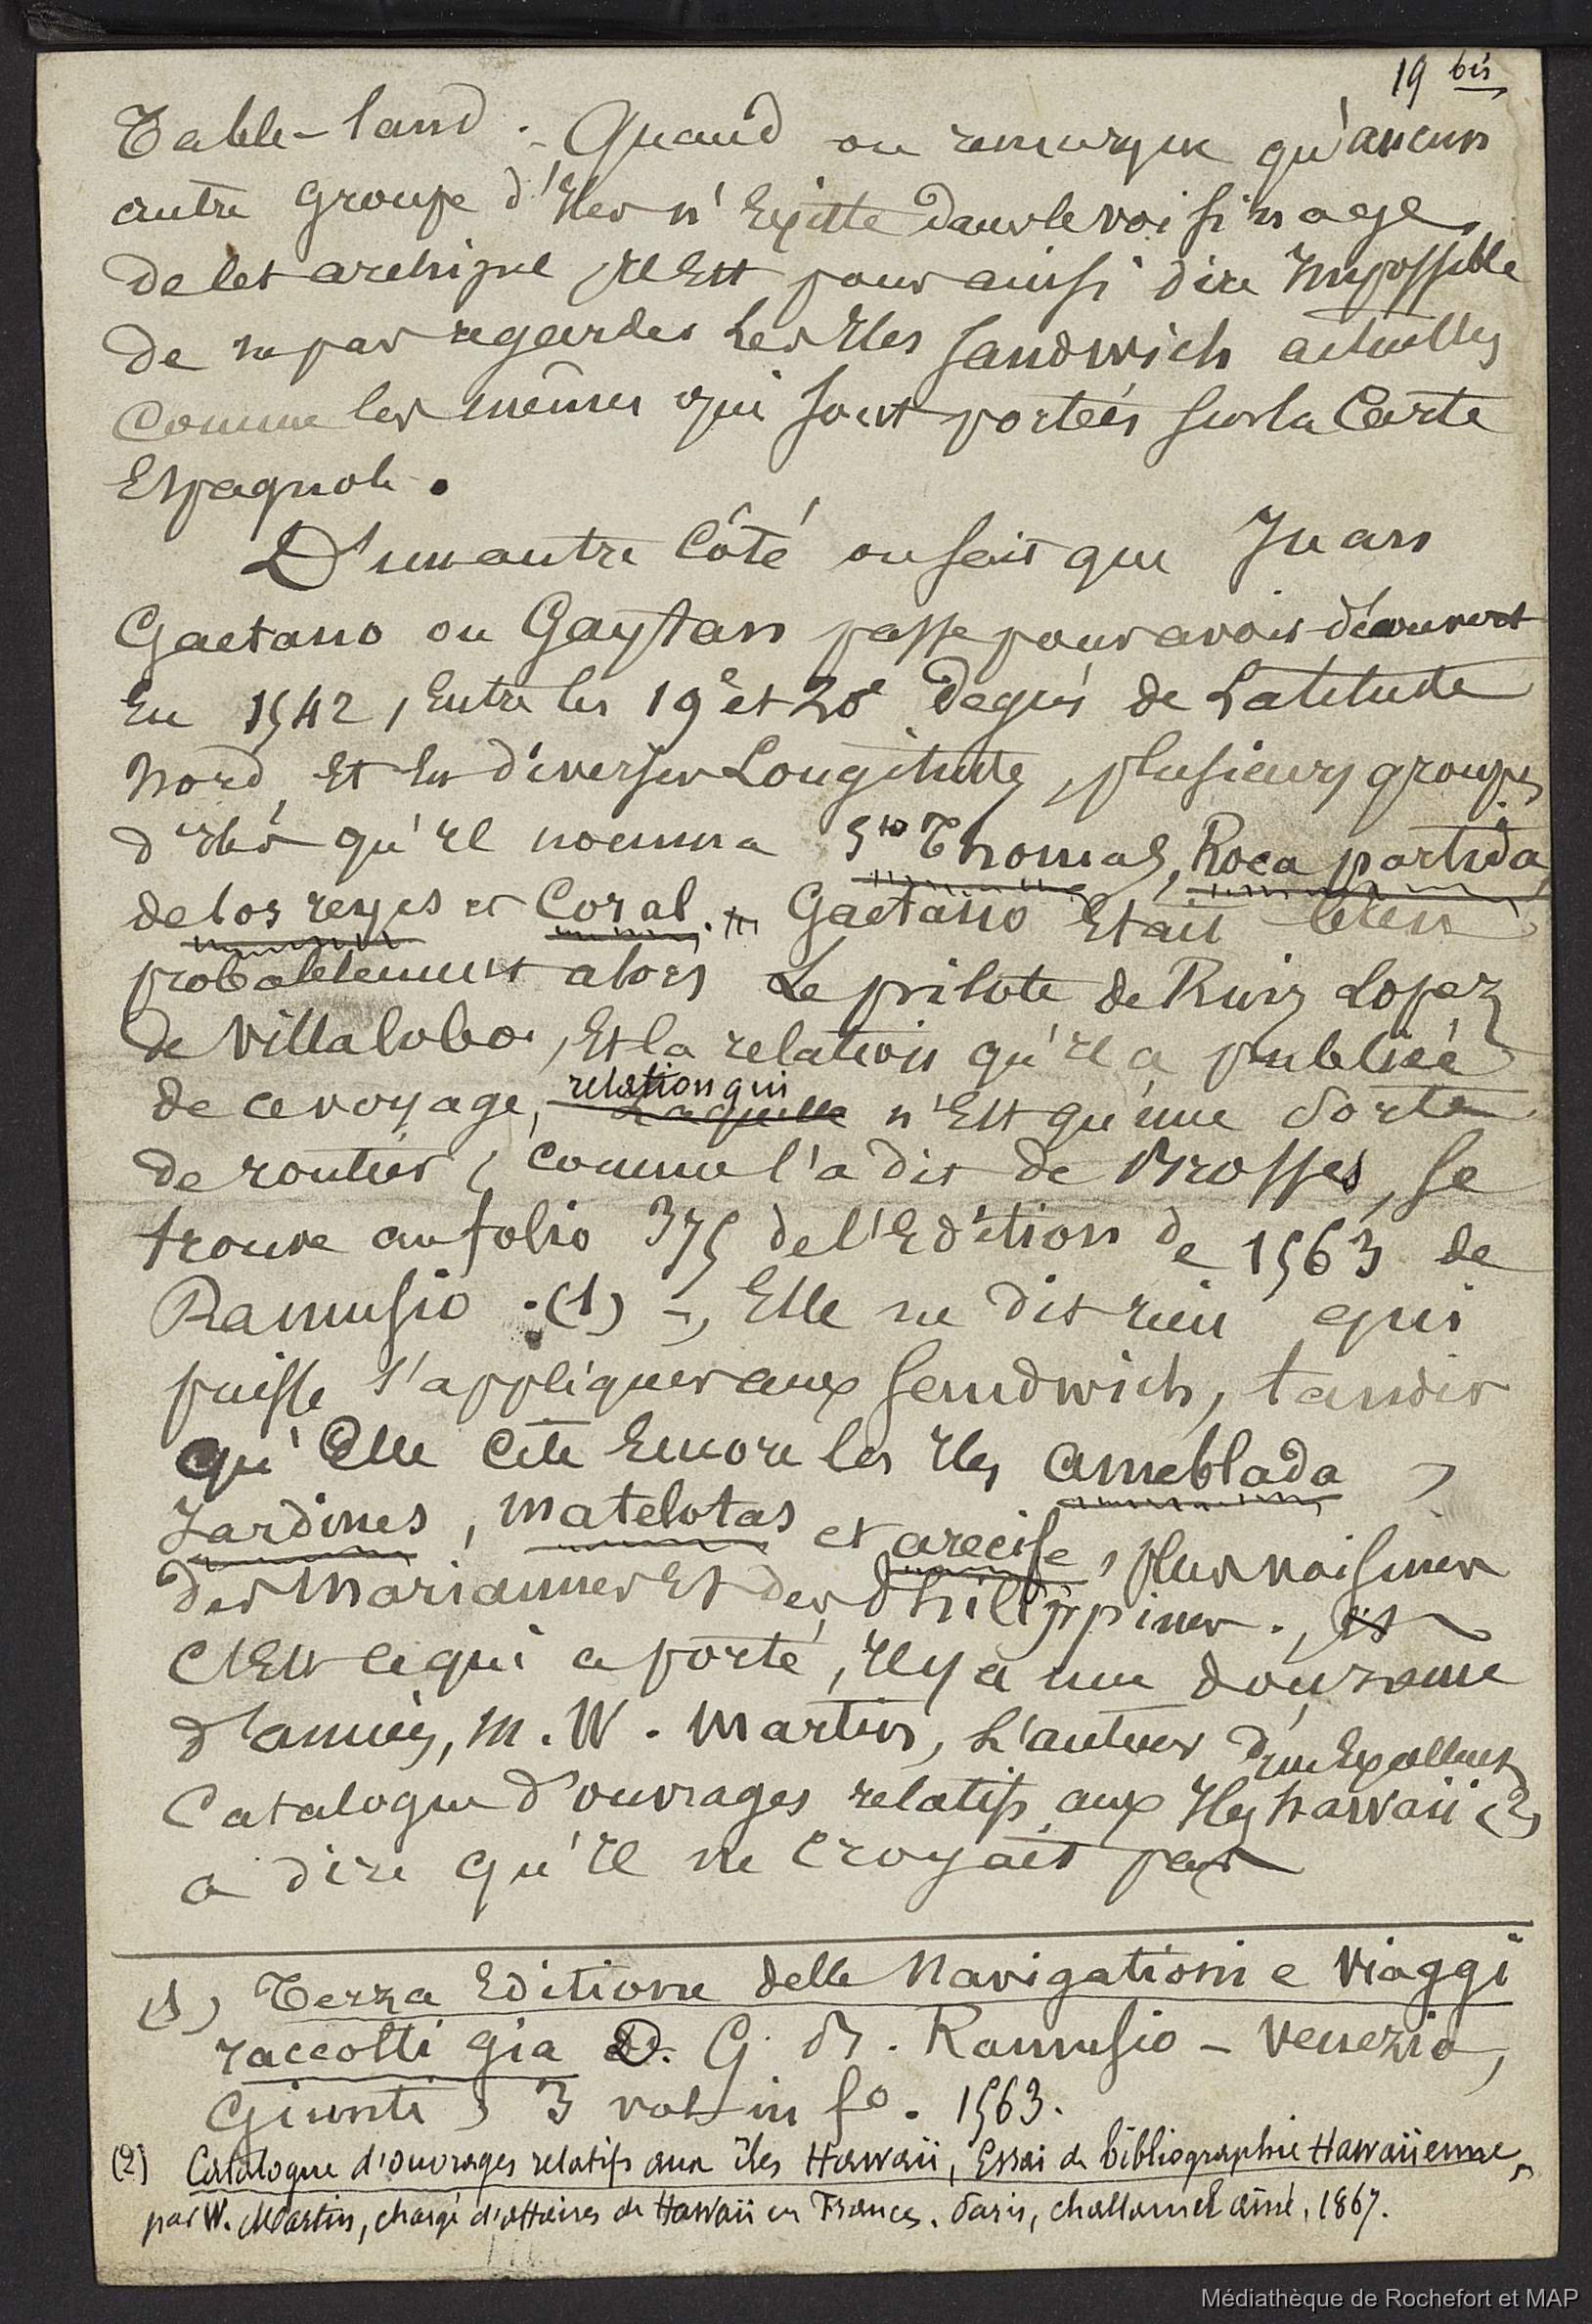 19 bis
Table-land. - Quand on remarque qu'aucun
autre groupe d'Iles n'Existe dans le voisinage
de cet archipel, Il Est pour ainsi dire Impossible
de ne pas regarder Les Iles Sandwich actuelles
Comme les mêmes qui sont portées sur la Carte
Espagnole.
D'un autre Côté on sait que Juan
Gaetano ou Gaytan passe pour avoir découvert
En 1542, Entre les 19e et 20e degrés de Latitude
Nord, Et En diverses Longitudes, plusieurs groupes
d'Iles qu'Il nomma Sto Thomas, Roca partida,
de los reyes et Coral. Gaetano Etait bien
probablement alors Le pilote de Ruiz Lopez
de Villalobo, Et la relation qu'Il a publiée
de ce voyage, relation qui laquelle n'Est qu'une Sorte
de routier, Comme l'a dit de Brosses, se
trouve au folio 375 de l'Edition de 1563 de
Ramusio. (1) -, Elle ne dit rien qui
puisse s'appliquer aux Sandwich, tandis
qu'Elle Cite Encore les Iles Ameblada,
Jardines, Matelotas et arecife, plus voisines
des Mariannes Et des Philippines., Et
C'Est ce qui a porté, Il y a une douzaine
d'années, M. W. Martin, L'auteur d'un Excellent
Catalogue d'ouvrages relatifs aux Iles hawaii (2)
a dire qu'Il ne Croyait pas
(1) Terza Editione delle Navigationi e Viaggi
raccolti gia D. G. B. Ramusio - Venezia,
Giunti, 3 vol in fo. 1563.
(2) Catalogue d'ouvrages relatifs aux îles Hawaii, Essai de bibliographie Hawaiienne,
par W. Martin, chargé d'affaires de Hawaii en France. Paris, challamel ainé, 1867.
Médiathèque de Rochefort et MAP